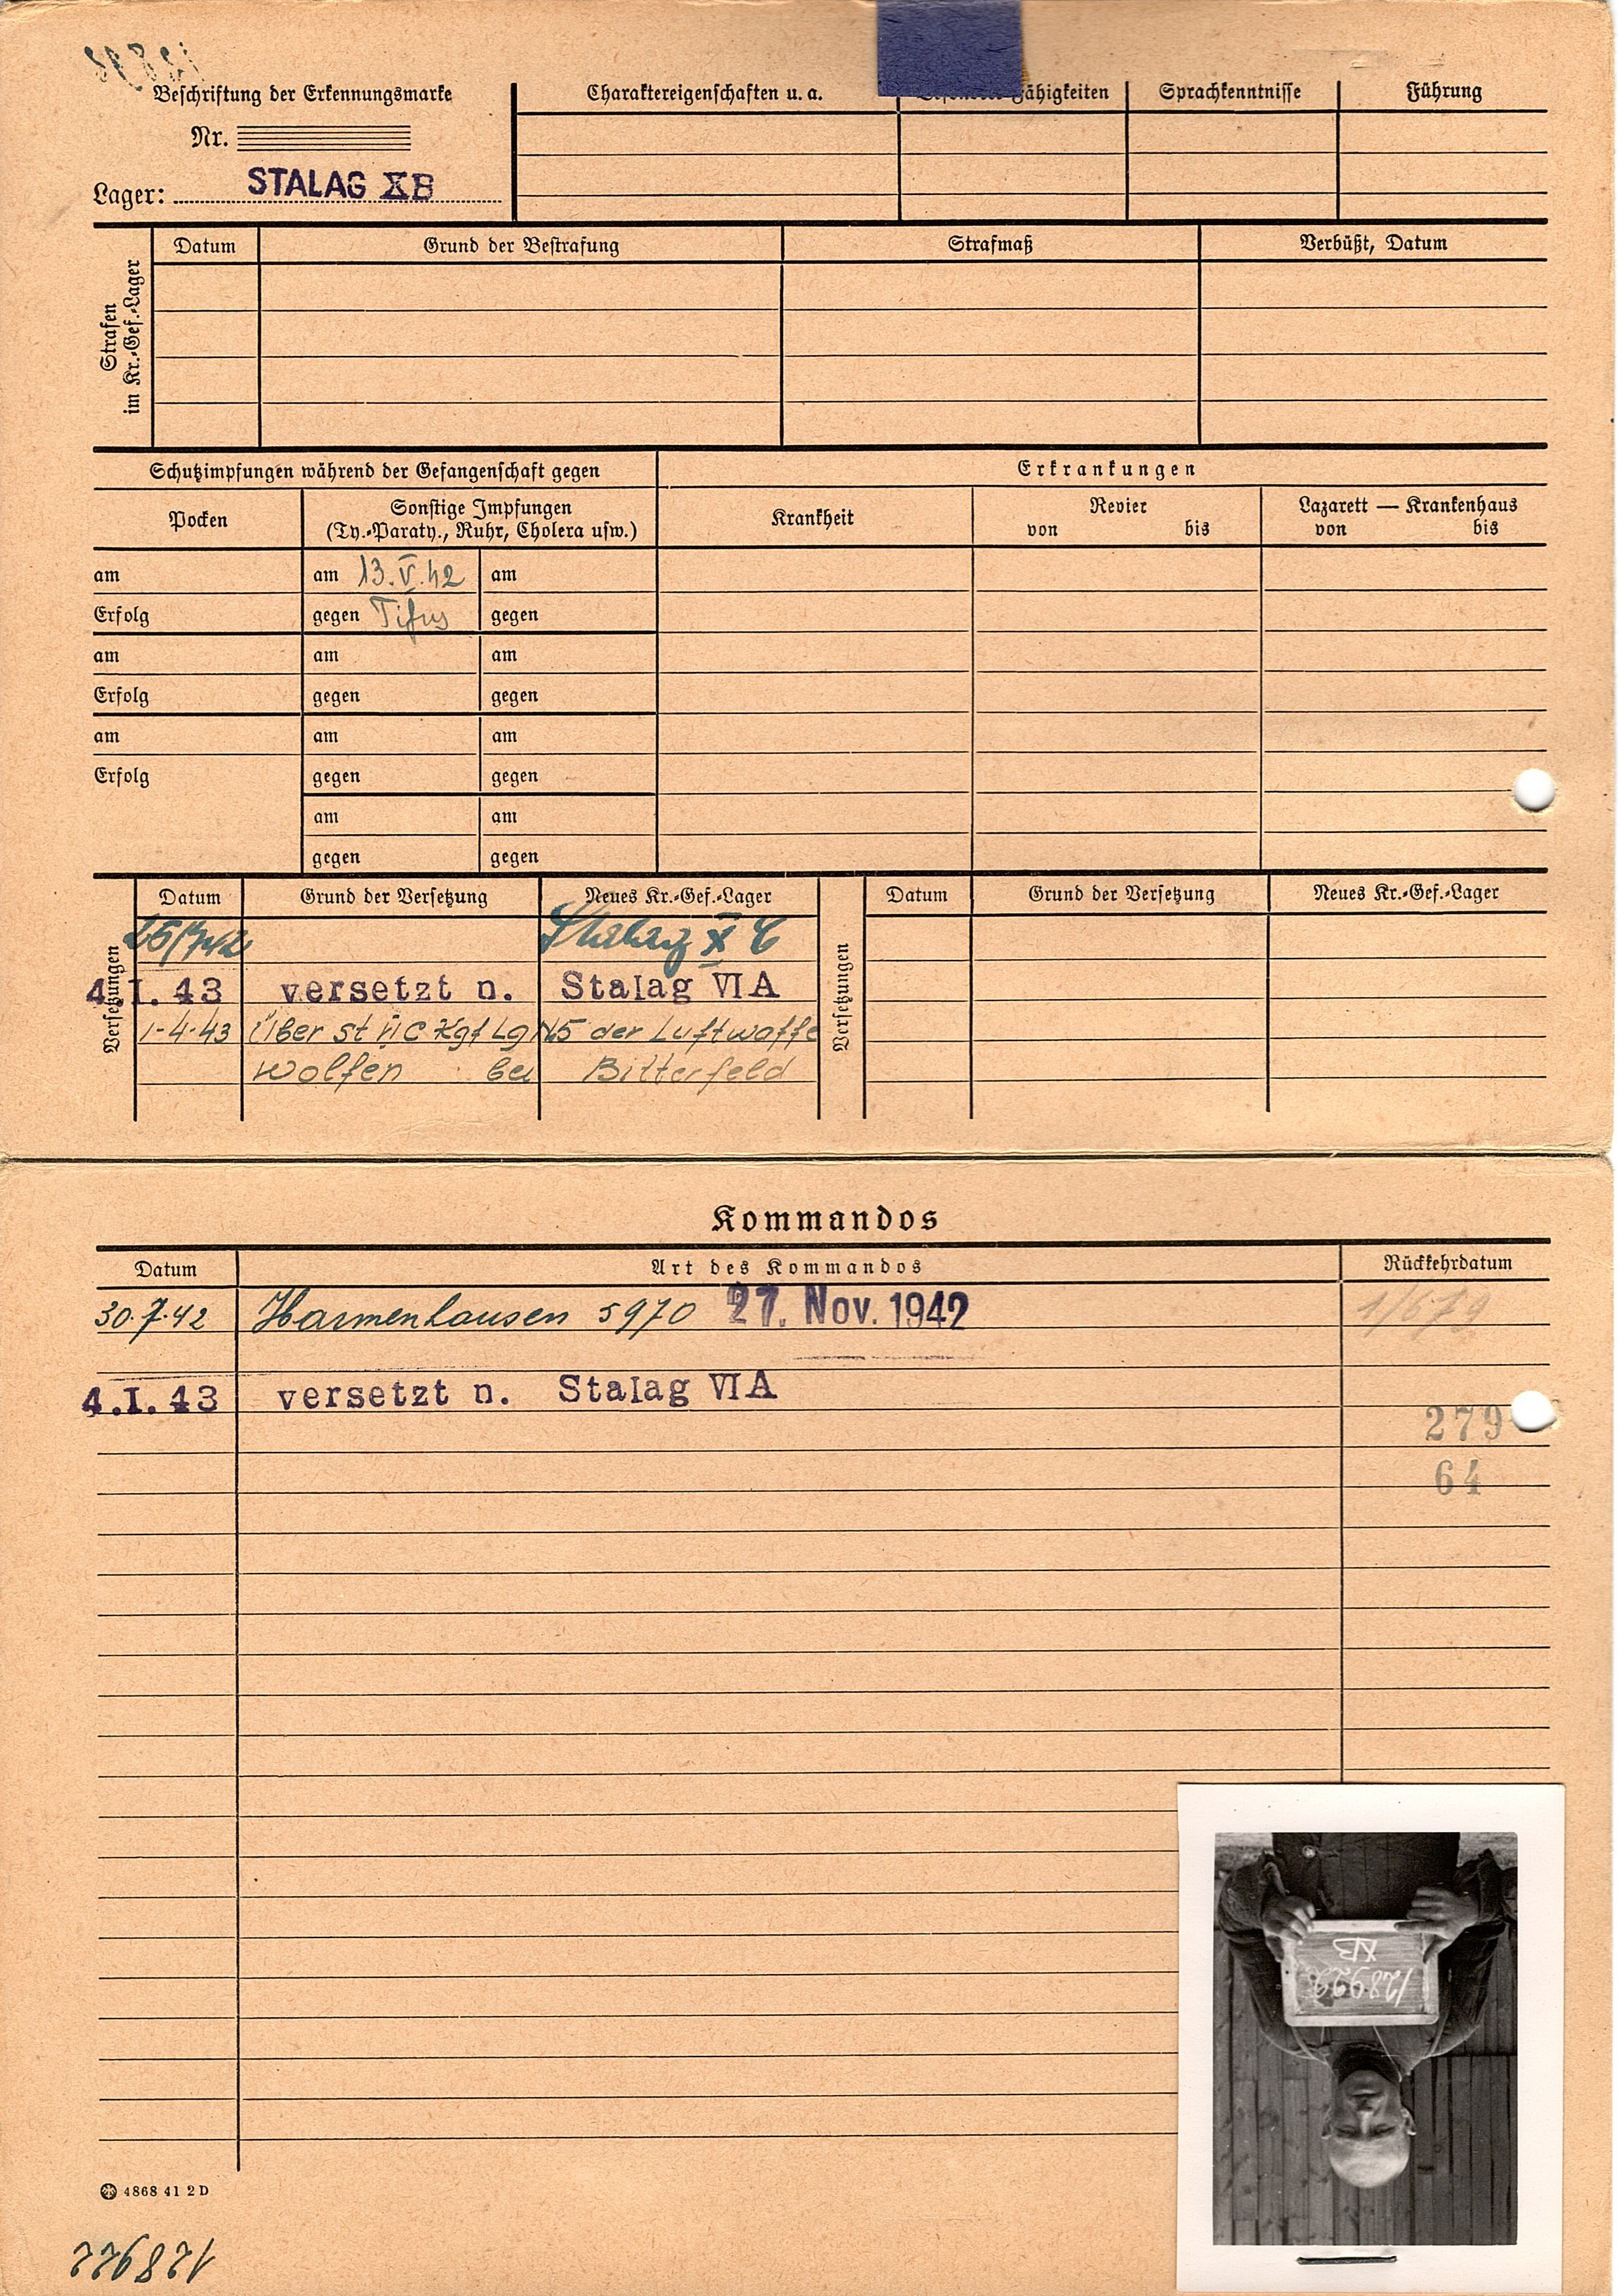 Beschriftung der Erkennungsmarke
Nr.
Lager: STALAG XB
Charaktereigenschaften u. a.
Fähigkeiten
Sprachkenntnisse
Führung
Strafen im Kr.-Gef.-Lager
Datum
Grund der Bestrafung
Strafmaß
Verbüßt, Datum
Schutzimpfungen während der Gefangenschaft gegen
Erkrankungen
Pocken
Sonstige Impfungen
(Ty.-Paraty., Ruhr, Cholera usw.)
Krankheit
Revier
von bis
Lazarett — Krankenhaus
von bis
am am 13.V.42 am
Erfolg gegen Tifus gegen
am am am
Erfolg gegen gegen
am am am
Erfolg gegen gegen
am am
gegen gegen
Versetzungen
Datum Grund der Versetzung Neues Kr.-Gef.-Lager
25/7 42 Stalag X C
4.I.43 versetzt n. Stalag VI A
1-4-43 Über St II C Kgf Lg N 5 der Luftwaffe
Wolfen bei Bitterfeld
Versetzungen
Datum Grund der Versetzung Neues Kr.-Gef.-Lager
Kommandos
Datum Art des Kommandos Rückkehrdatum
30.7.42 Harmenhausen 5970 27. Nov. 1942 1/679
4.I.43 versetzt n. Stalag VI A
279
64
128922
XB
4868 41 2 D
128922